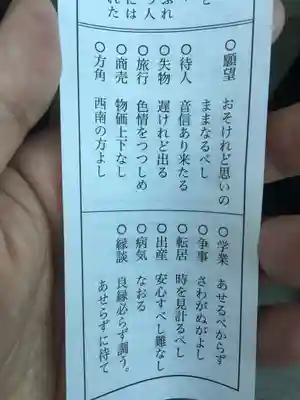 と
ふれ
つ人
には
れた
○願望 おそけれど思いの
ままなるべし
○待人 音信あり来たる
○失物 遅けれど出る
○旅行 色情をつつしめ
○商売 物価上下なし
○方角 西南の方よし
○学業 あせるべからず
○争事 さわがぬがよし
○転居 時を見計るべし
○出産 安心すべし難なし
○病気 なおる
○縁談 良縁必らず調う。
あせらずに待て